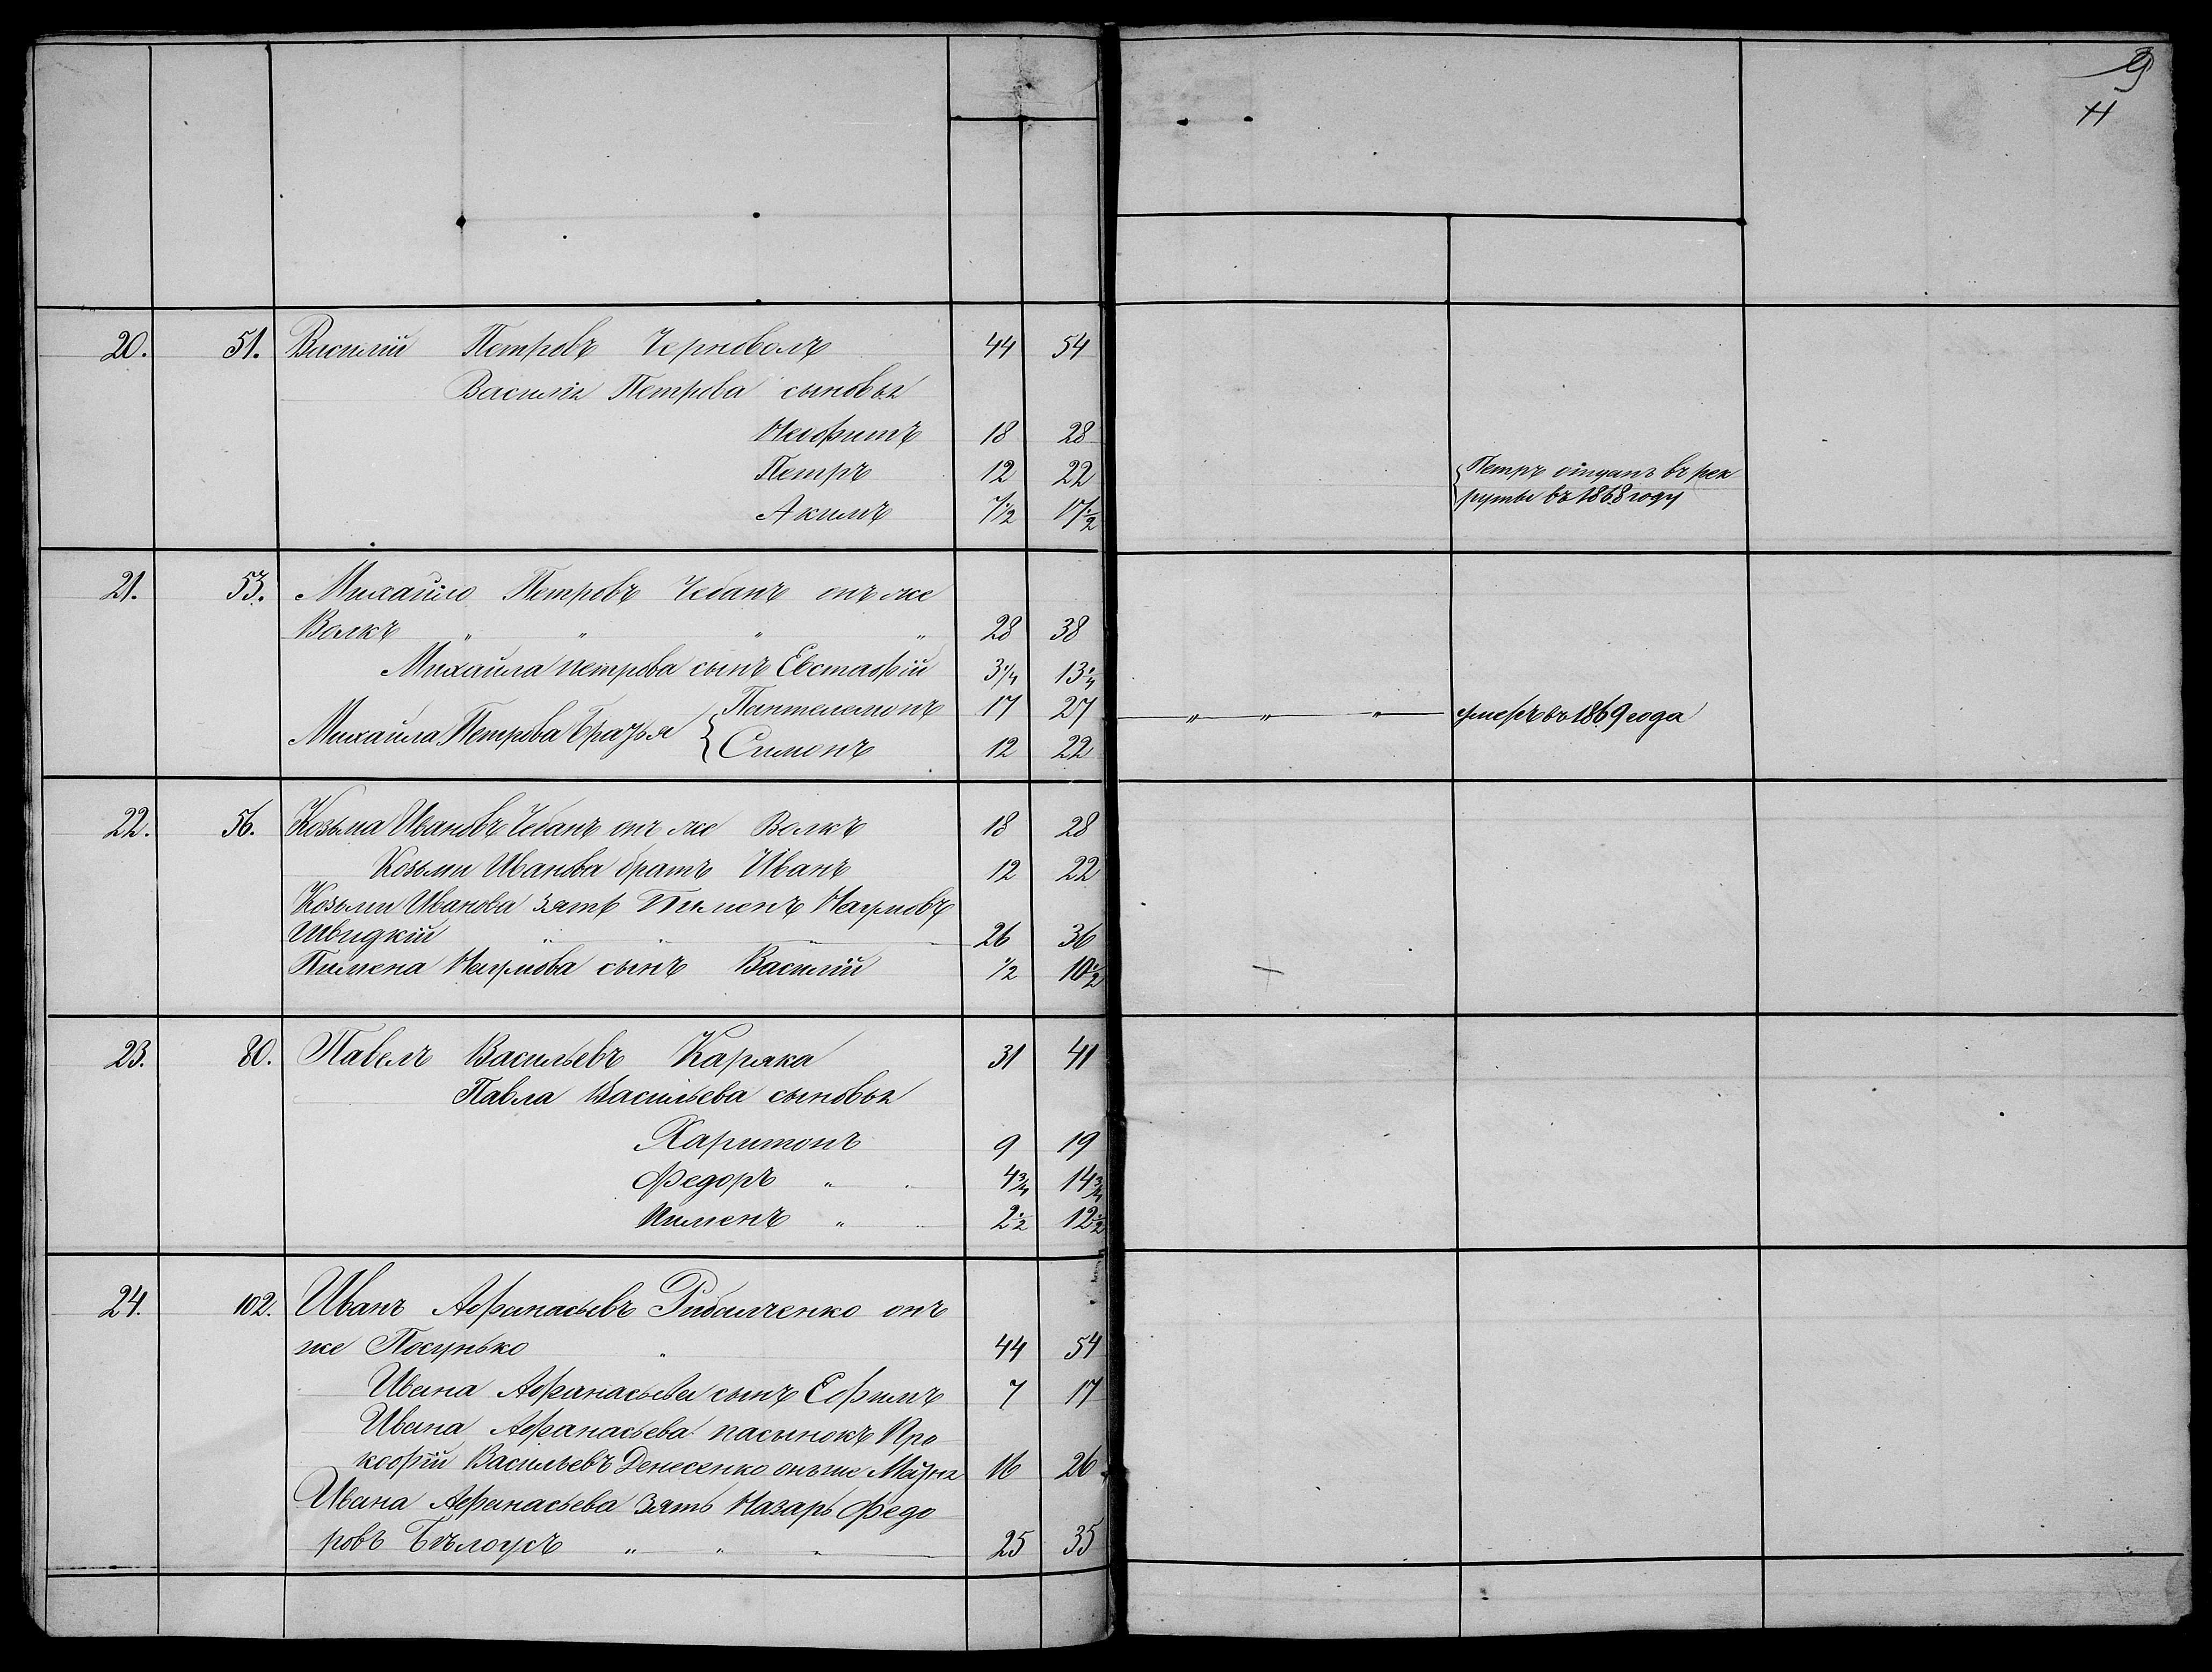 9
11
20. 51. Василій Петровъ Черноволъ 44 54
Василія Петрова сыновья
Неофитъ 18 28
Петръ 12 22 Петръ отданъ въ рек
Акимъ 7 1/2 17 1/2 руты въ 1868 году
21. 53. Михайло Петровъ Чебанъ онъ же
Волкъ " " " " 28 38
Михайла петрова сынъ Евстафій 3 1/4 13 1/4
Михайла Петрова братья { Пантелемонъ 17 27 " " " умеръ въ 1869 года
Симонъ 12 22
22. 56. Козьма Ивановъ Чебанъ онъ же Волкъ 18 28
Козьми Иванова братъ Иванъ 12 22
Козьми Иванова зять Пименъ Наумовъ
Швидкій " " " 26 36
Пимена Наумова сынъ Василій 1/2 10 1/2
23. 80. Павелъ Васильевъ Каряка 31 41
Павла Васильева сыновья
Харитонъ 9 19
Федоръ " " 4 3/4 14 3/4
Пименъ " " 2 1/2 12 1/2
24. 102. Иванъ Афанасьевъ Рибалченко онъ
же Посунько " 44 54
Ивана Афанасьева сынъ Ефимъ 7 17
Ивана Афанасьева пасынокъ Про
кофій Васильевъ Денесенко онъ же 16 26
Ивана Афанасьева Зять Назаръ Федо
ровъ Бѣлоусъ " " " 25 35